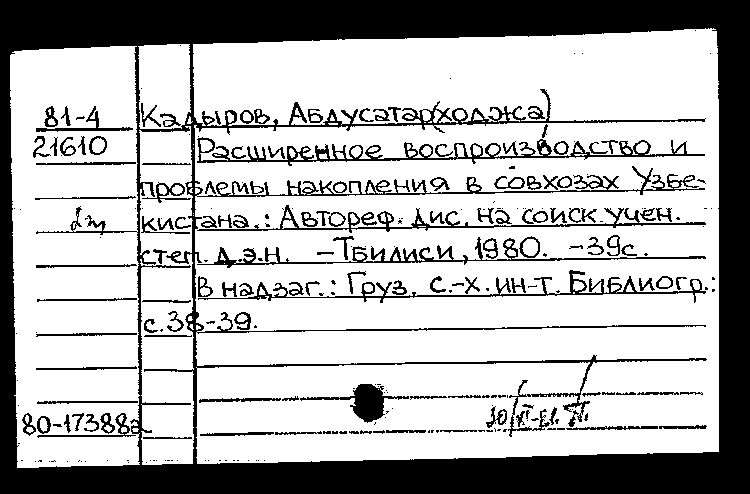 81-4 Кадыров, Абдусатар(ходжа)
21610 Расширенное воспроизводство и
проблемы накопления в совхозах Узбе-
кистана.: Автореф. дис. на соиск. учен.
степ. д.э.н. – Тбилиси, 1980. – 39с.
В надзаг.: Груз. с.-х. ин-т. Библиогр.:
с.38-39.
80-17388а